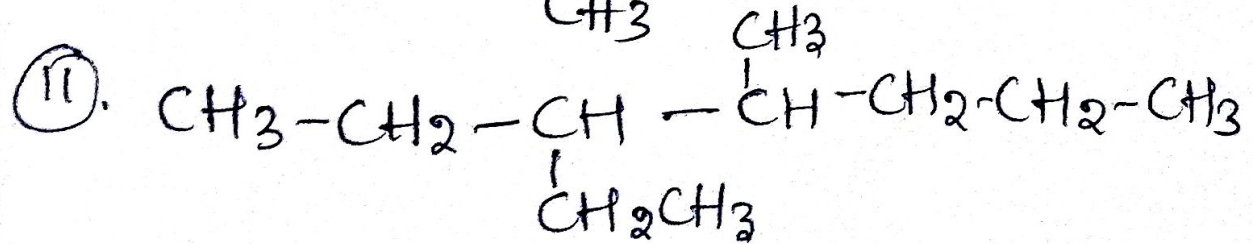 CH3 CH3
(11). CH3-CH2-CH-CH-CH2-CH2-CH3
CH2CH3